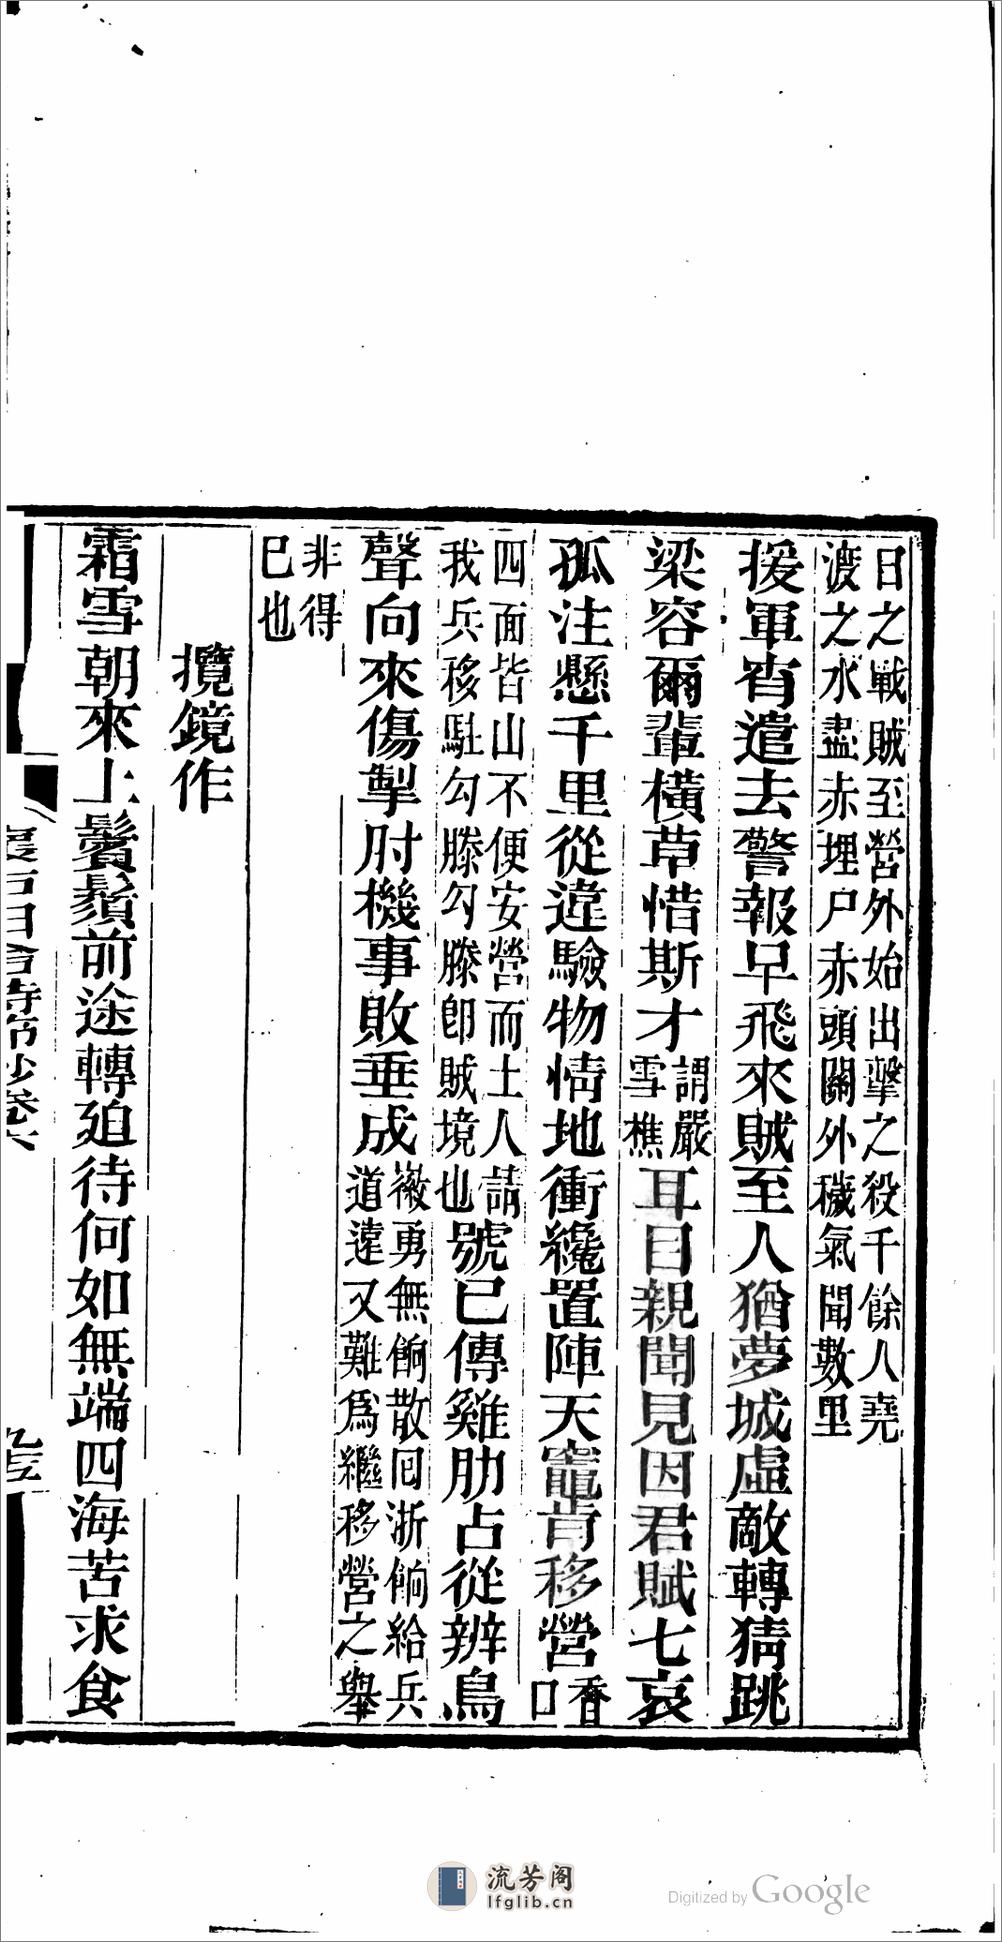 日之戰賊至營外始出擊之殺千餘人堯
渡之水盡赤埋尸赤頭關外穢氣聞數里
援軍宵遣去警報早飛來賊至人猶夢城虛敵轉猜跳
梁容爾輩橫草惜斯才謂嚴雪樵耳目親聞見因君賦七哀
孤注懸千里從違驗物情地衝纔置陣天竈肯移營香口
四面皆山不便安營而土人請我兵移駐勾滕勾滕卽賊境也號已傳雞肋占從辨鳥
聲向來傷掣肘機事敗垂成徽勇無餉散回浙餉給兵道遠又難爲繼移營之舉
非得已也
攬鏡作
霜雪朝來上鬢鬚前途轉廹待何如無端四海苦求食
詩帚抄卷六
九五
流芳阁
lfglib.cn
Digitized by Google